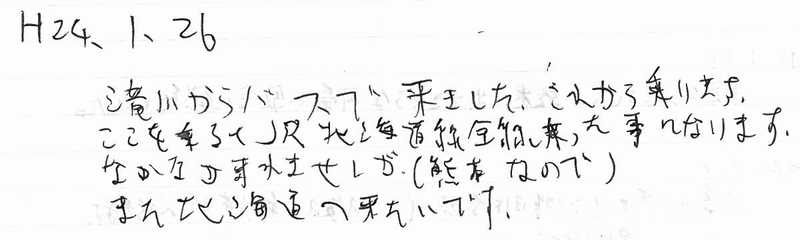 H24、1、26
滝川からバスで来ました、これから乗ります。
ここを乗るとJR北海道線全線乗った事になります。
なかなか来れませんが、(熊本なので)
また北海道へ来たいです。